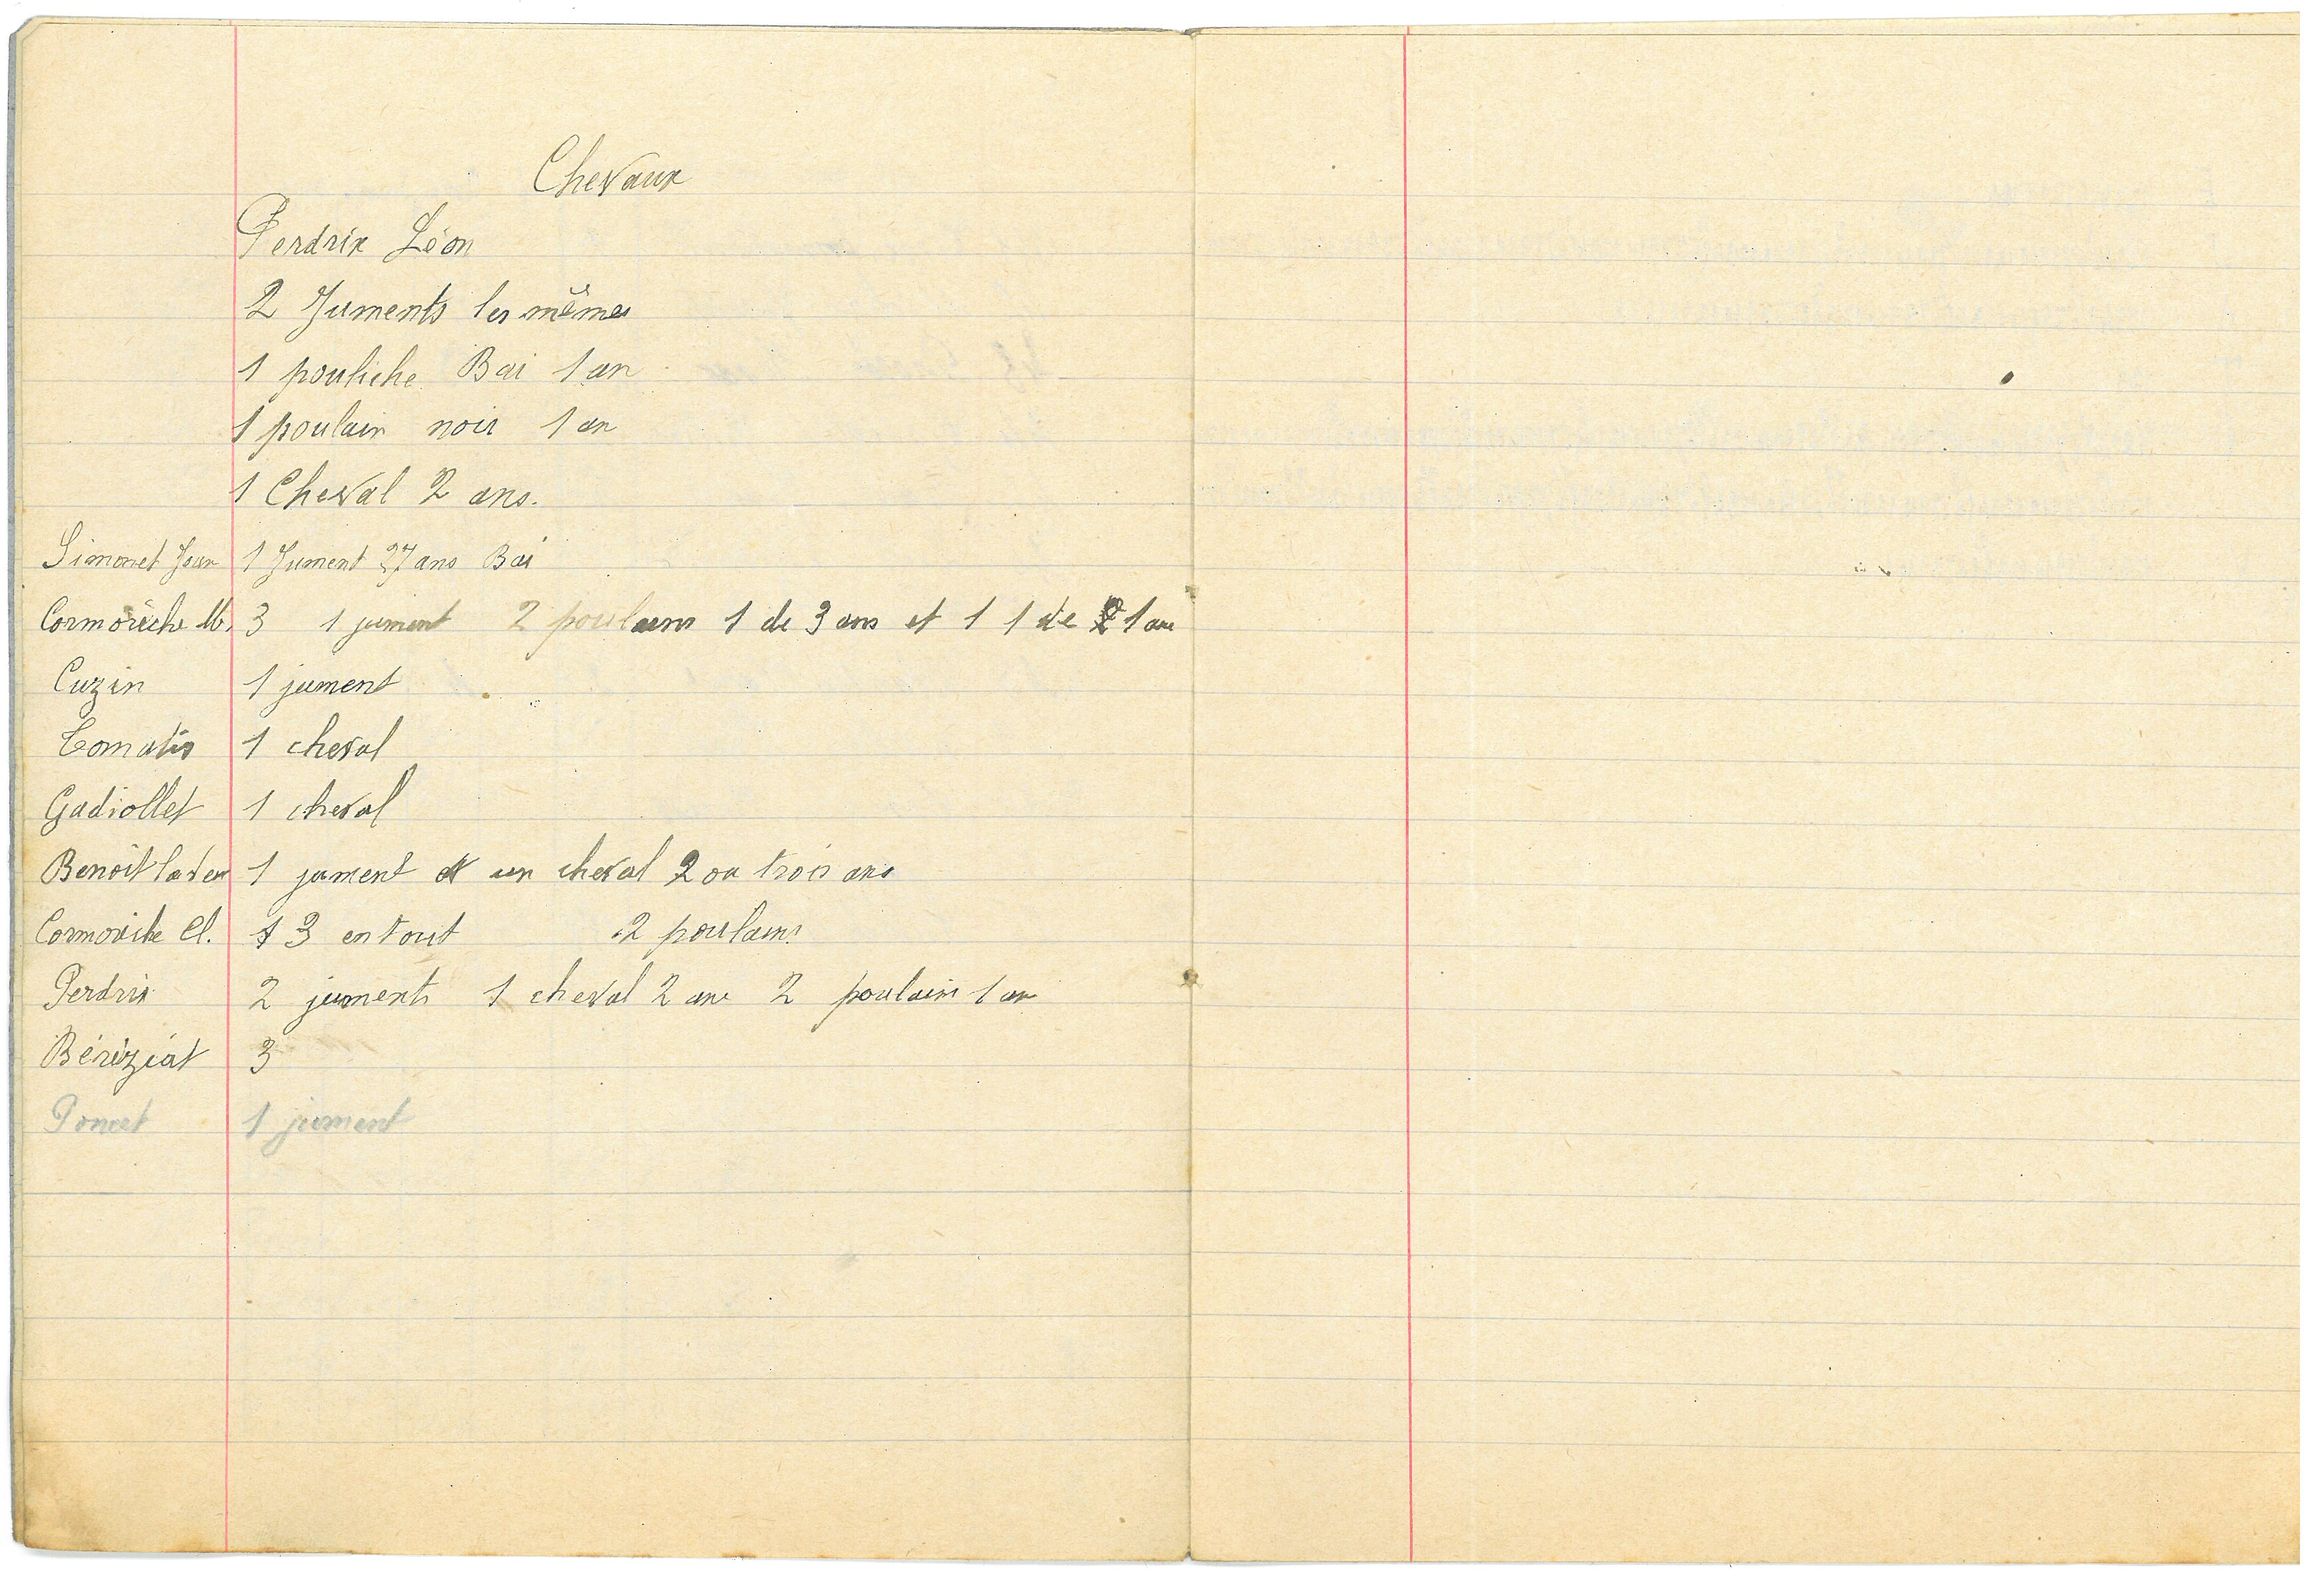 Chevaux
Perdrix Léon
2 Juments les mêmes
1 pouliche Bai 1 an
1 poulain noir 1 an
1 Cheval 2 ans.
Simonet Jean 1 Jument 27 ans Bai
Cormorèche M. 3 1 jument 2 poulains 1 de 3 ans et 1 1 de 1 an
Cuzin 1 jument
Comatis 1 cheval
Gadiollet 1 cheval
Benoît 1 jument et un cheval 2 ou trois ans
Cormorèche Cl. 3 en tout 2 poulains
Perdrix 2 juments 1 cheval 2 ans 2 poulains 1 an
Béréziat 3
Poncet 1 jument